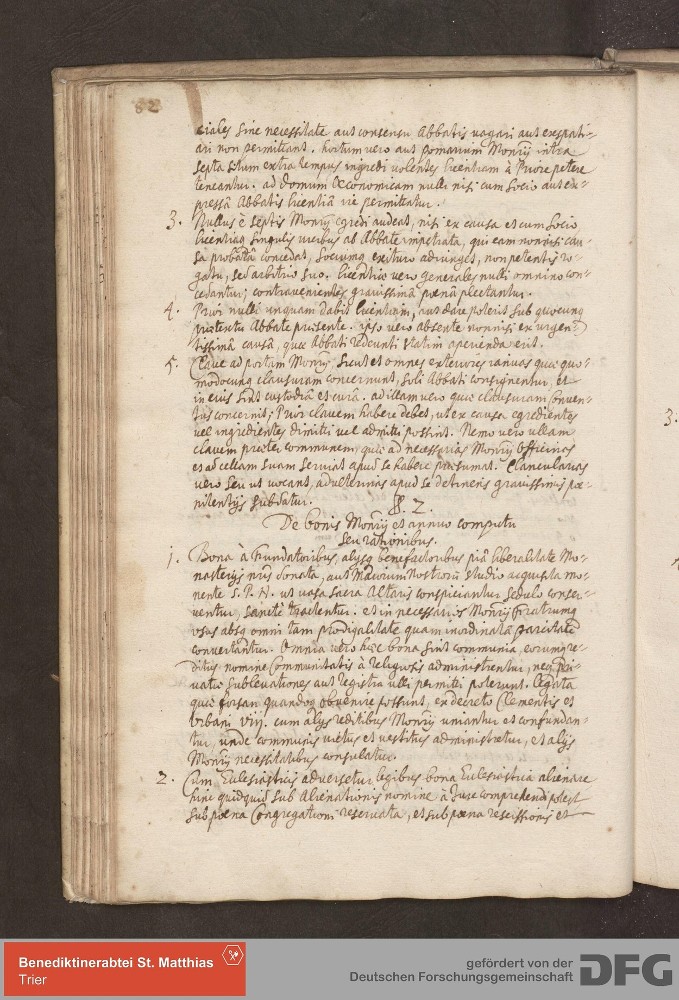 82
ciales sine necessitate aut consensu Abbatis vagari aut exspati-
ari non permittant. hortum vero aut pomarium Monrij intra
septa situm extra tempus ingredi volentes licentiam à Priore petere
teneantur. ad domum Oeconomicam nulli nisi cum socio aut ex-
pressâ Abbatis licentiâ ire permittatur.
3. Nullus è septis Monrij egredi audeat, nisi ex causa et cum socio
licentiaq singulis vicibus ab Abbate impetrata, qui eam non nisi cau-
sâ probatâ concedat, sociumq exituro adiungat, non petentis ro-
gatu, sed arbitrio suo. licentia vero generales nulli omnino con-
cedantur; contravenientes gravissimâ poenâ plectantur.
4. Prior nulli unquam dabit licentiam, aut dare poterit sub quocunq
praetextu Abbate praesente. ipso vero absente non nisi ex urgen-
tissimâ causâ, quae Abbati redeunti statim aperienda erit.
5. Clave ad portam Monrij, sicut et omnes exteriores ianuas quae quo-
modocunq clausuram concernunt, soli Abbati consignentur, et
in eius sint custodiâ et curâ. ad illam vero quae clausuram conven-
tus concernit; Prior clavem habere debet, ut ex causa egredientes
vel ingredientes dimitti vel admitti possint. Nemo vero ullam
clavem praeter communem, quae ad necessarias Monrij Officinas
et ad cellam suam serviat apud se habere praesumat. Clancularias
vero seu ut vocant, adulterinas apud se detinens gravissimis poe-
nitentijs subdatur.
§. 2.
De bonis Monrij et annuo computu
seu rationibus.
1. Bona à Fundatoribus, alijsq benefactoribus piâ liberalitate Mo-
nasterijs nris donata, aut Maiorum Nostrorū studio acquisita mo-
nente S. P. N. ut vasa sacra Altaris conspiciantur sedulo conser-
ventur, sanctè tractentur. et in necessarios Monrij fratrumq
usus absq omni tam prodigalitate quam inordinatâ parcitate
convertantur. Omnia vero haec bona sint communia, eorumq re-
ditus nomine Communitatis à religiosis administrentur, neq pri-
vatae sublevationes aut registra ulli permitti poterunt. legata
quae forsan quandoq obvenire possunt, ex decreto Clementis et
Urbani Viij. cum alijs reditibus Monrij uniantur et confundan-
tur, unde communis victus et vestitus administretur, et alijs
Monrij necessitatibus consulatur.
2. Cum Eclesiasticis adversetur legibus bona Eclesiastica alienare
hinc quidquid sub alienationis nomine à Jure comprehendi potest
sub poena Congregationi reservata, et sub poena rescissionis et
3.
Benediktinerabtei St. Matthias
Trier
gefördert von der
Deutschen Forschungsgemeinschaft
DFG